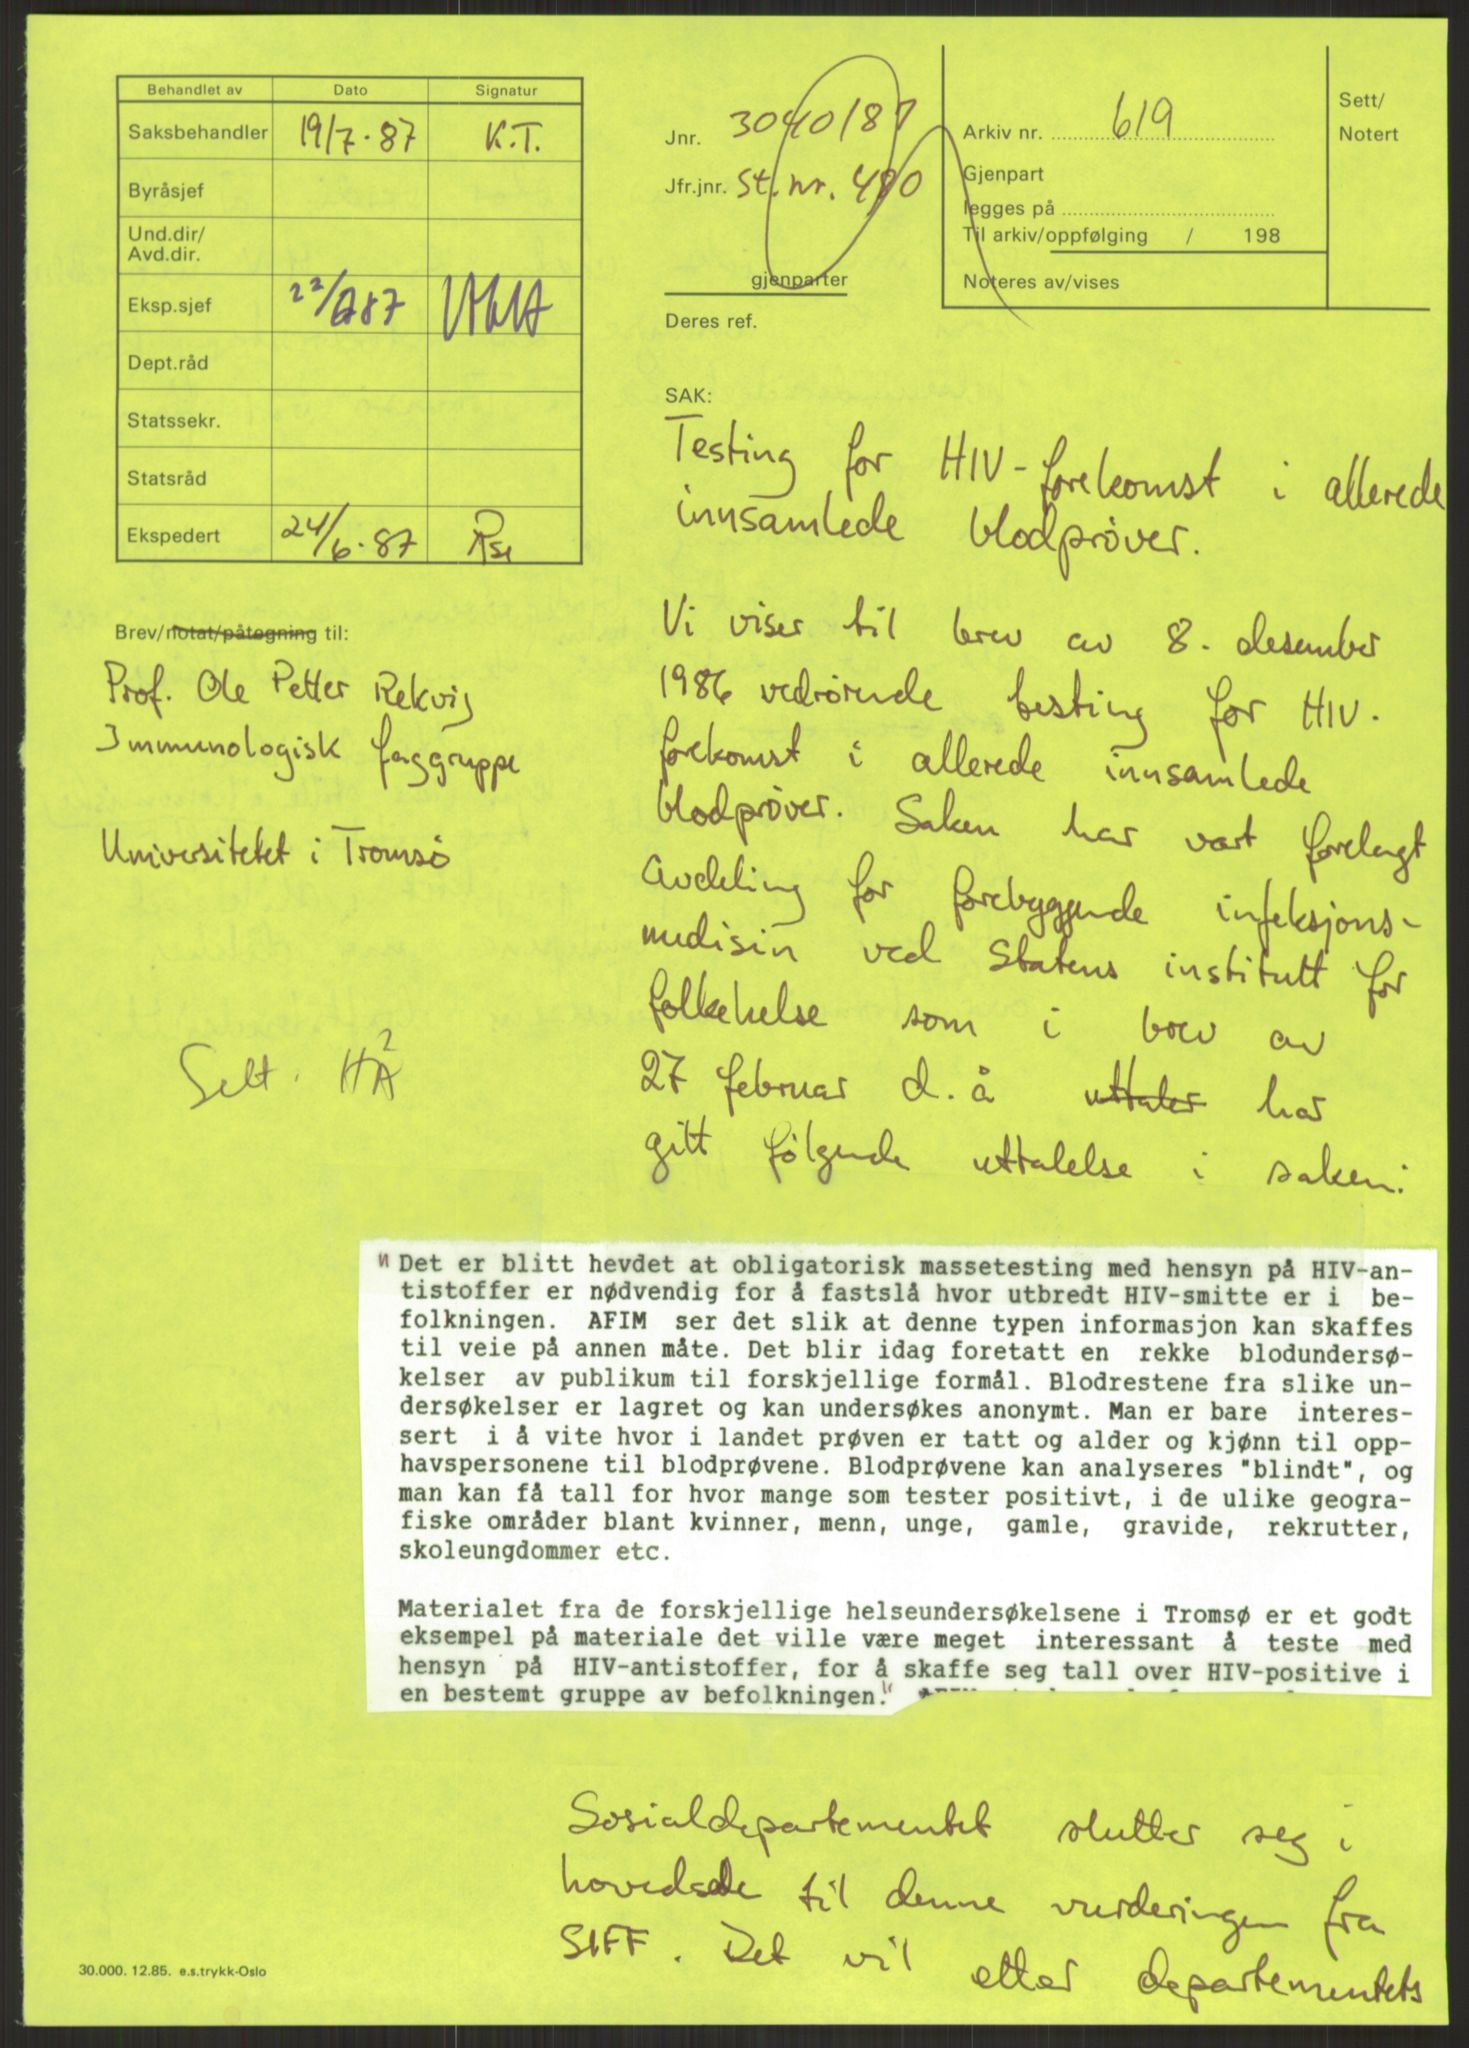 Behandlet av Dato Signatur
Saksbehandler 19/7-87 K.T.
Byråsjef
Und.dir/
Avd.dir.
Eksp.sjef
Dept.råd
Statssekr.
Statsråd
Ekspedert 24/6-87
Jnr. 3040/87
Jfr.jnr. St.nr. 490
gjenparter
Deres ref.
Arkiv nr. 619
Gjenpart
legges på
Til arkiv/oppfølging / 198
Noteres av/vises
Sett/
Notert
Brev/notat/påtegning til:
Prof. Ole Petter Rekvig
Immunologisk faggruppe
Universitetet i Tromsø
SAK:
Testing for HIV-forekomst i allerede
innsamlede blodprøver.
Vi viser til brev av 8. desember
1986 vedrørende testing for HIV-
forekomst i allerede innsamlede
blodprøver. Saken har vært forelagt
Avdeling for forebyggende infeksjons-
medisin ved Statens institutt for
folkehelse som i brev av
27 februar d.å uttaler har
gitt følgende uttalelse i saken:
Sett. HÅ²
"Det er blitt hevdet at obligatorisk massetesting med hensyn på HIV-an-
tistoffer er nødvendig for å fastslå hvor utbredt HIV-smitte er i be-
folkningen. AFIM ser det slik at denne typen informasjon kan skaffes
til veie på annen måte. Det blir idag foretatt en rekke blodundersø-
kelser av publikum til forskjellige formål. Blodrestene fra slike un-
dersøkelser er lagret og kan undersøkes anonymt. Man er bare interes-
sert i å vite hvor i landet prøven er tatt og alder og kjønn til opp-
havspersonene til blodprøvene. Blodprøvene kan analyseres "blindt", og
man kan få tall for hvor mange som tester positivt, i de ulike geogra-
fiske områder blant kvinner, menn, unge, gamle, gravide, rekrutter,
skoleungdommer etc.
Materialet fra de forskjellige helseundersøkelsene i Tromsø er et godt
eksempel på materiale det ville være meget interessant å teste med
hensyn på HIV-antistoffer, for å skaffe seg tall over HIV-positive i
en bestemt gruppe av befolkningen."
Sosialdepartementet slutter seg i
hovedsade til denne vurderingen fra
SIFF. Det vil etter departementets
30.000. 12.85. e.s.trykk-Oslo